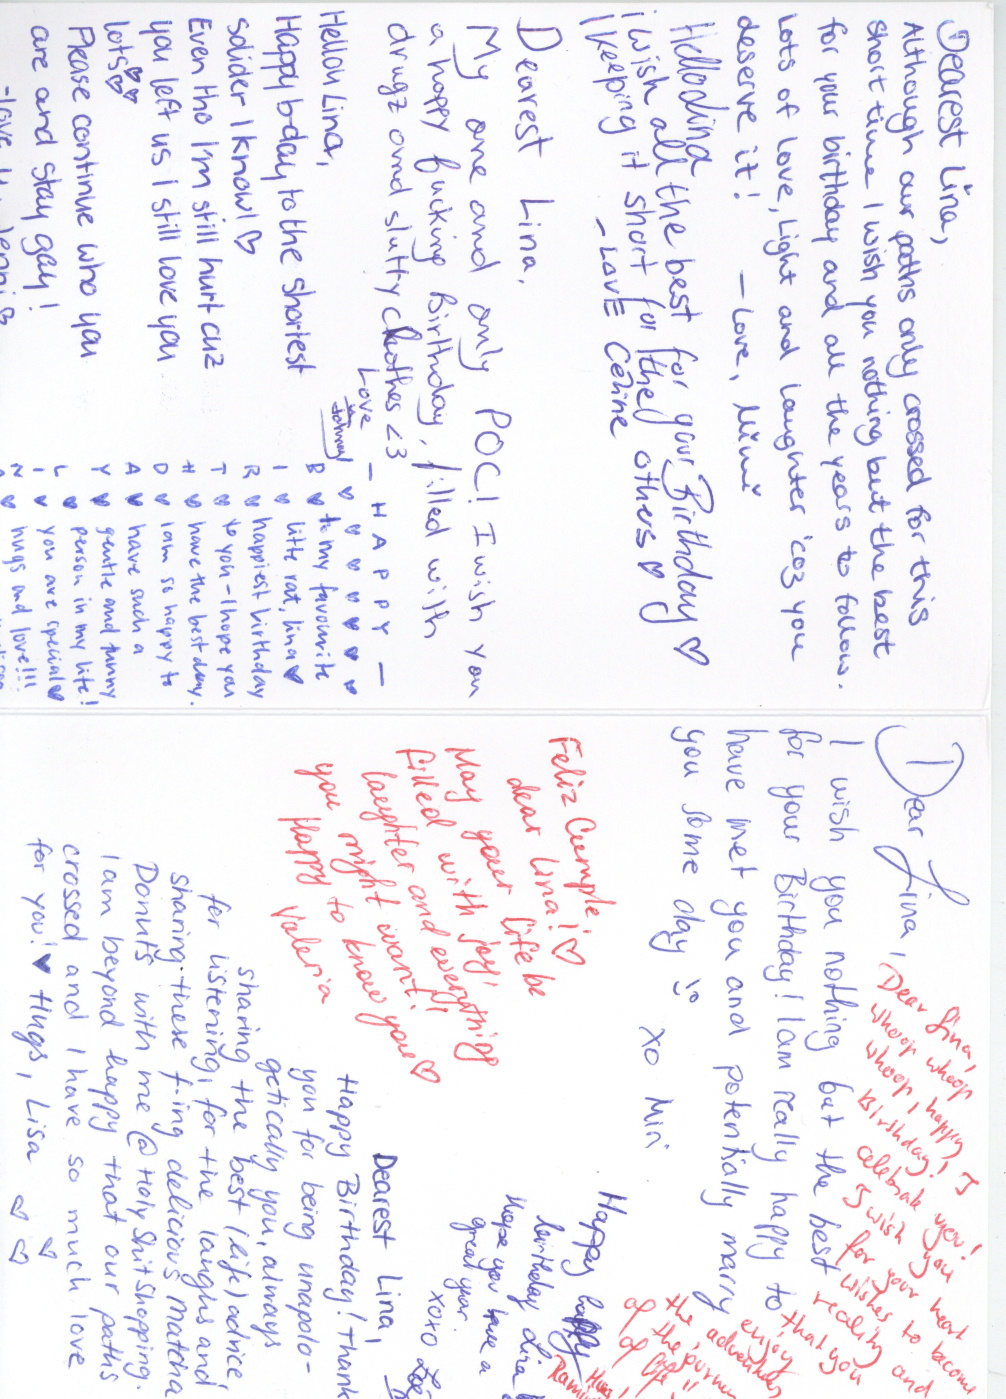 Dearest Lina,
Although our paths only crossed for this
short time I wish you nothing but the best
for your birthday and all the years to follow.
Lots of love, Light and laughter 'coz you
deserve it! — Love, Mimi
Hello Lina
I wish all the best for your Birthday ♡
(keeping it short for the others ♡)
– LOVE Céline
Dearest Lina,
My one and only POC! I wish you
a happy fucking Birthday, filled with
drugz and slutty clothes <3
Love
Johnny
Hellou Lina,
Happy b-day to the shortest
solider I know! ♡
Even tho I'm still hurt cuz
you left us I still love you
lots ♡♡
Please continue who you
are and stay gay!
– H A P P Y –
♥ ♥ ♥ ♥ ♥ ♥
B ♥ to my favourite
I ♥ little rat, lina ♥
R ♥ happiest birthday
T ♥ to you – I hope you
H ♥ have the best day.
D ♥ I am so happy to
A ♥ have such a
Y ♥ gentle and funny
L ♥ person in my life!
I ♥ you are special ♥
N ♥ hugs and love!!!
Dear Lina,
I wish you nothing but the best
for your Birthday! I am really happy to
have met you and potentially marry
you some day
XO Miri
Dear Lina,
whoop whoop
whoop, happy
Birthday! I
celebrate you!
I wish you
for your heart
wishes to become
reality and
that you
enjoy
the adventures
of the
of life
Feliz Cumple
dear Lina! ♡
May your life be
filled with joy,
laughter and everything
you might want!
Happy to know you ♡
Valeria
Happy happy
birthday Lina
Hope you have a
great year.
xoxo
Dearest Lina,
Happy Birthday! Thank
you for being unapolo-
getically you, always
sharing the best (life) advice,
for listening, for the laughs and
sharing these f-ing delicious Matcha
Donuts with me @ Holy Shit Shopping.
I am beyond happy that our paths
crossed and I have so much love
for you! ♥ Hugs, Lisa ♡ ♡ ♡